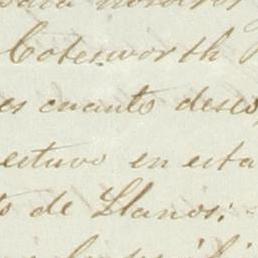 Cotesworth
es cuanto deseo
estuvo en esta
to de Llanos: